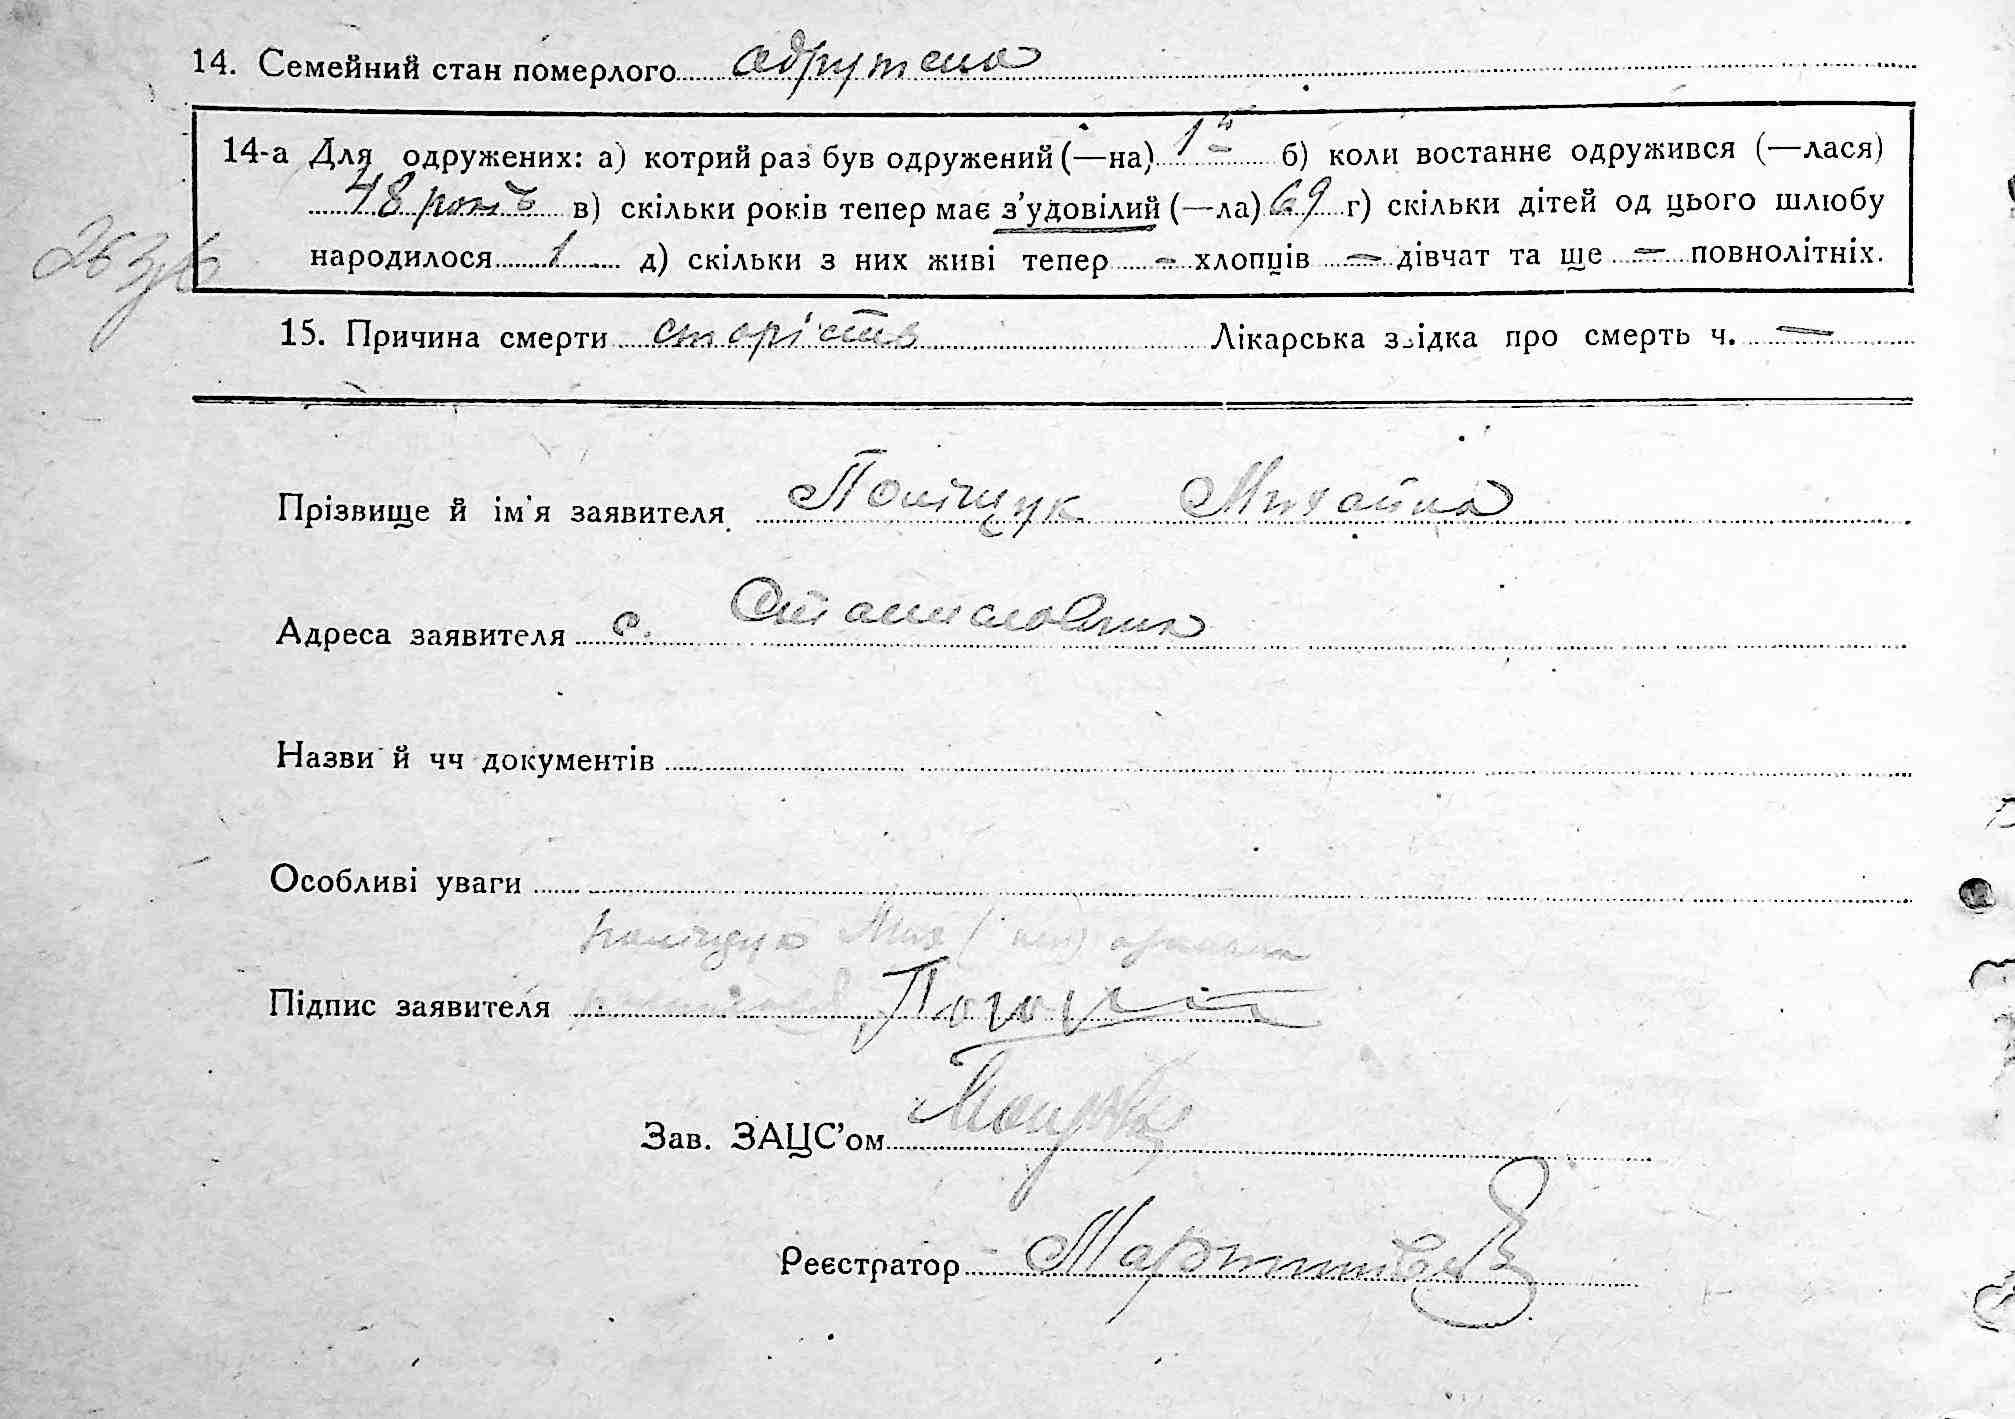 14. Семейний стан померлого одружена
14-а Для одружених: а) котрий раз був одружений (—на) 1й б) коли востаннє одружився (—лася)
48 років в) скільки років тепер має з'удовілий (—ла) 69 г) скільки дітей од цього шлюбу
народилося 1 д) скільки з них живі тепер - хлопців — дівчат та ще — повнолітніх.
15. Причина смерти старість Лікарська звідка про смерть ч. —
Прізвище й ім'я заявителя Поліщук Михайло
Адреса заявителя с. Станиславчик
Назви й чч документів
Особливі уваги
Підпис заявителя
Зав. ЗАЦС'ом
Реєстратор